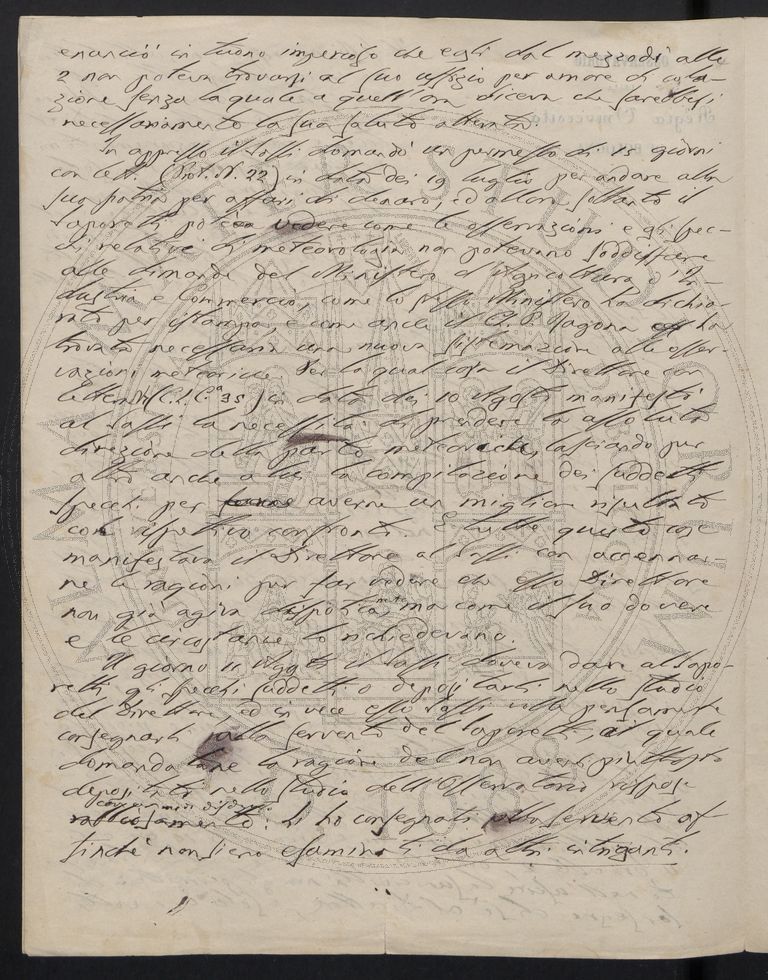 enunciò in tuono imperioso che egli dal mezzodì alle
2 non poteva trovarsi al suo uffizio per amore di cola-
zione senza la quale a quell'ora diceva che sarebbesi
necessariamente la sua salute alterata.
In appresso il Sassi domandò un permesso di 15 giorni
con lett. (Prot. N. 22) in data dei 19 luglio per andare alla
sua patria per affari di denaro, ed allora soltanto il
Saporetti potè vedere come le osservazioni e gli spec-
chi relativi di meteorologia non potevano soddisfare
alle dimande del Ministero d'Agricoltura, d'In-
dustria e Commercio, come lo stesso Ministero ha dichia-
rato per istampa, e come anche il Ragona ha
trovato necessaria una nuova sistemazione alle osser-
vazioni meteoriche. Per la qual cosa il Direttore con
lettera 35) in data dei 10 Agosto manifestò
al Sassi la necessità di prendere la assoluta
direzione della parte meteorica, lasciando pur
altro anche a lui la compilazione dei suddetti
specchi per averne un miglior risultato
coi rispettivi confronti. E tutte queste cose
manifestava il Direttore al Sassi con accennar-
ne le ragioni per far vedere che esso Direttore
non già agiva dispoticamente, ma come il suo dovere
e le circostanze lo richiedevano.
Il giorno 11 Agosto il Sassi doveva dare al Sapo-
retti gli specchi suddetti o depositarli nello studio
del Direttore, ed in vece esso Sassi volle pensatamente
consegnarli alla servente del Saporetti, al quale
domandatane la ragione del non averli piuttosto
depositati nello studio dell'Osservatorio rispose
con maniere
: li ho consegnati alla servente af-
finchè non sieno esaminati da altri intriganti.